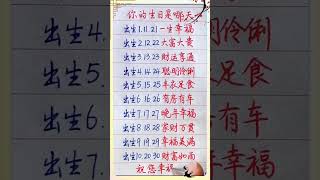 你的生日是哪天
出生1.11.21一生幸福
出生2.12.22大富大贵
出生3.13.23财运亨通
出生4.14.24聪明伶俐
出生5.15.25丰衣足食
出生6.16.26有房有车
出生7.17.27晚年幸福
出生8.18.28家财万贯
出生9.19.29幸福美满
出生10.20.30财富如雨
祝您幸福